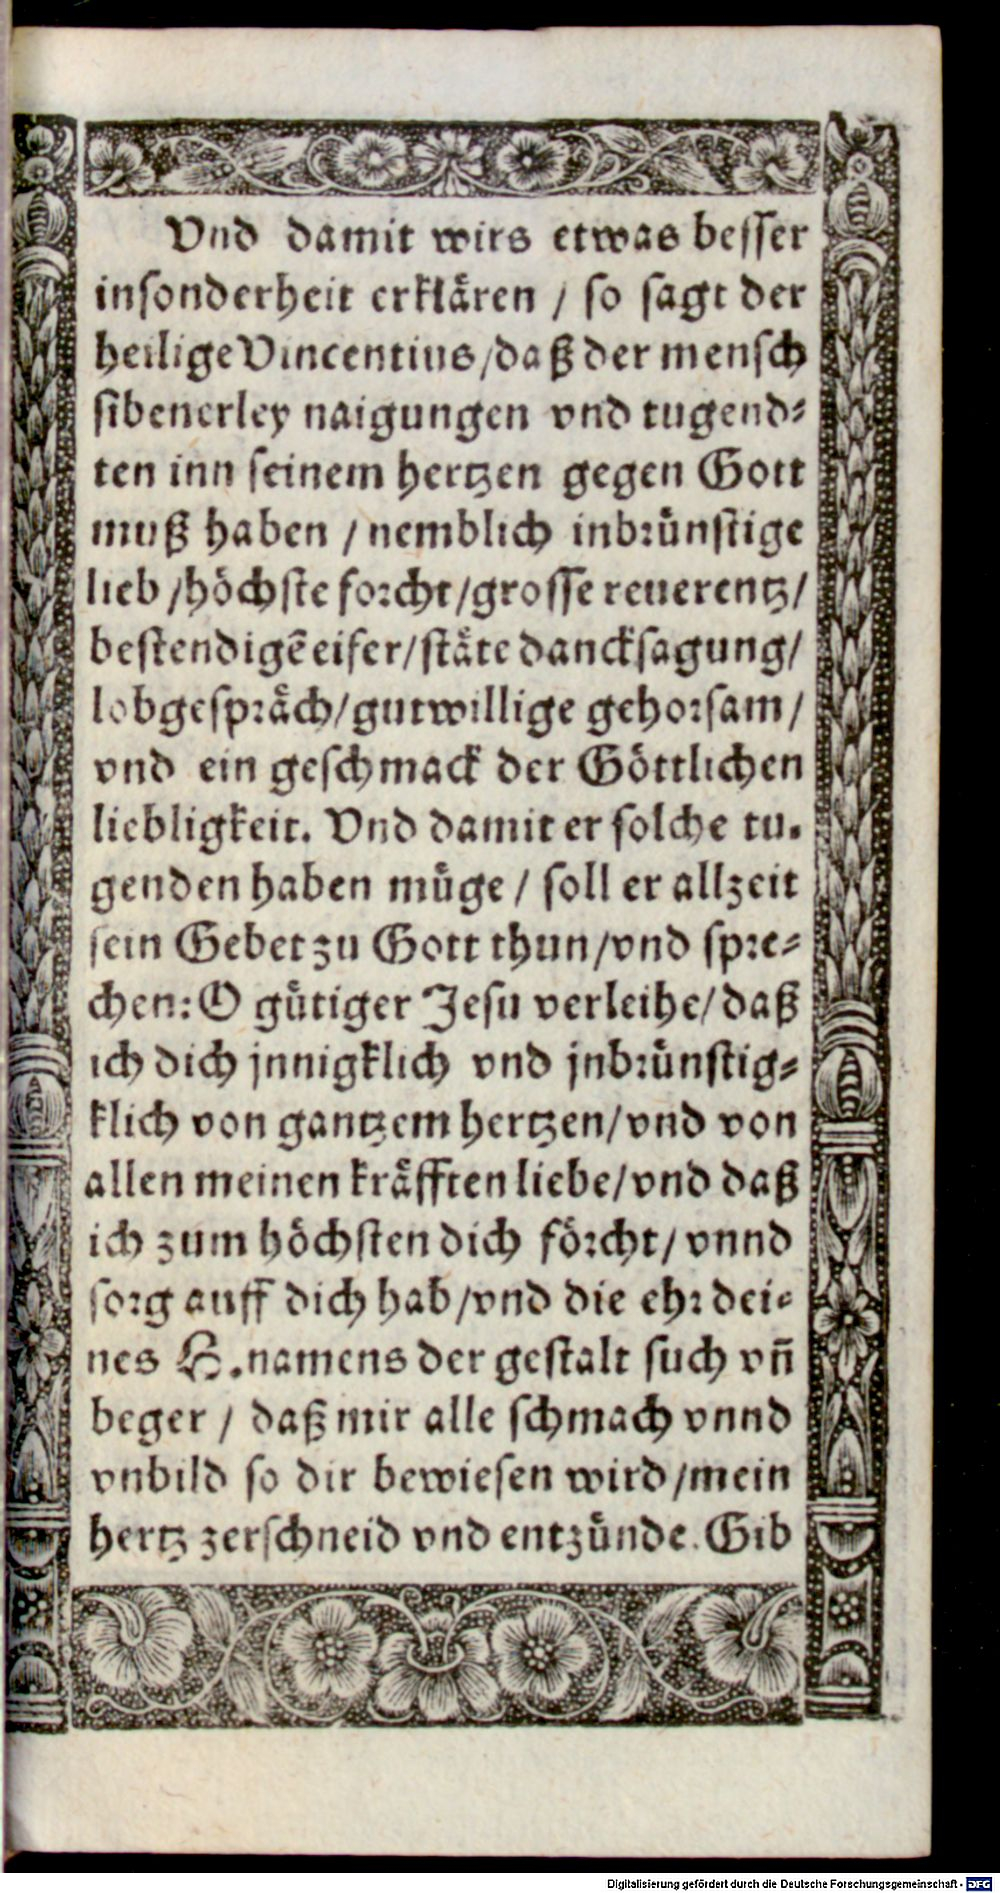 Vnd damit wirs etwas besser
insonderheit erklären / so sagt der
heilige Vincentius / daß der mensch
sibenerley naigungen vnd tugend-
ten inn seinem hertzen gegen Gott
muß haben / nemblich inbrünstige
lieb / höchste forcht / grosse reuerentz /
bestendigē eifer / stäte dancksagung /
lobgespräch / gutwillige gehorsam /
vnd ein geschmack der Göttlichen
liebligkeit. Vnd damit er solche tu-
genden haben müge / soll er allzeit
sein Gebet zu Gott thun / vnd spre-
chen: O gütiger Jesu verleihe / daß
ich dich jnnigklich vnd jnbrünstig-
klich von gantzem hertzen / vnd von
allen meinen kräfften liebe / vnd daß
ich zum höchsten dich förcht / vnnd
sorg auff dich hab / vnd die ehr dei-
nes H. namens der gestalt such vn̄
beger / daß mir alle schmach vnnd
vnbild so dir bewiesen wird / mein
hertz zerschneid vnd entzünde. Gib
Digitalisierung gefördert durch die Deutsche Forschungsgemeinschaft - DFG